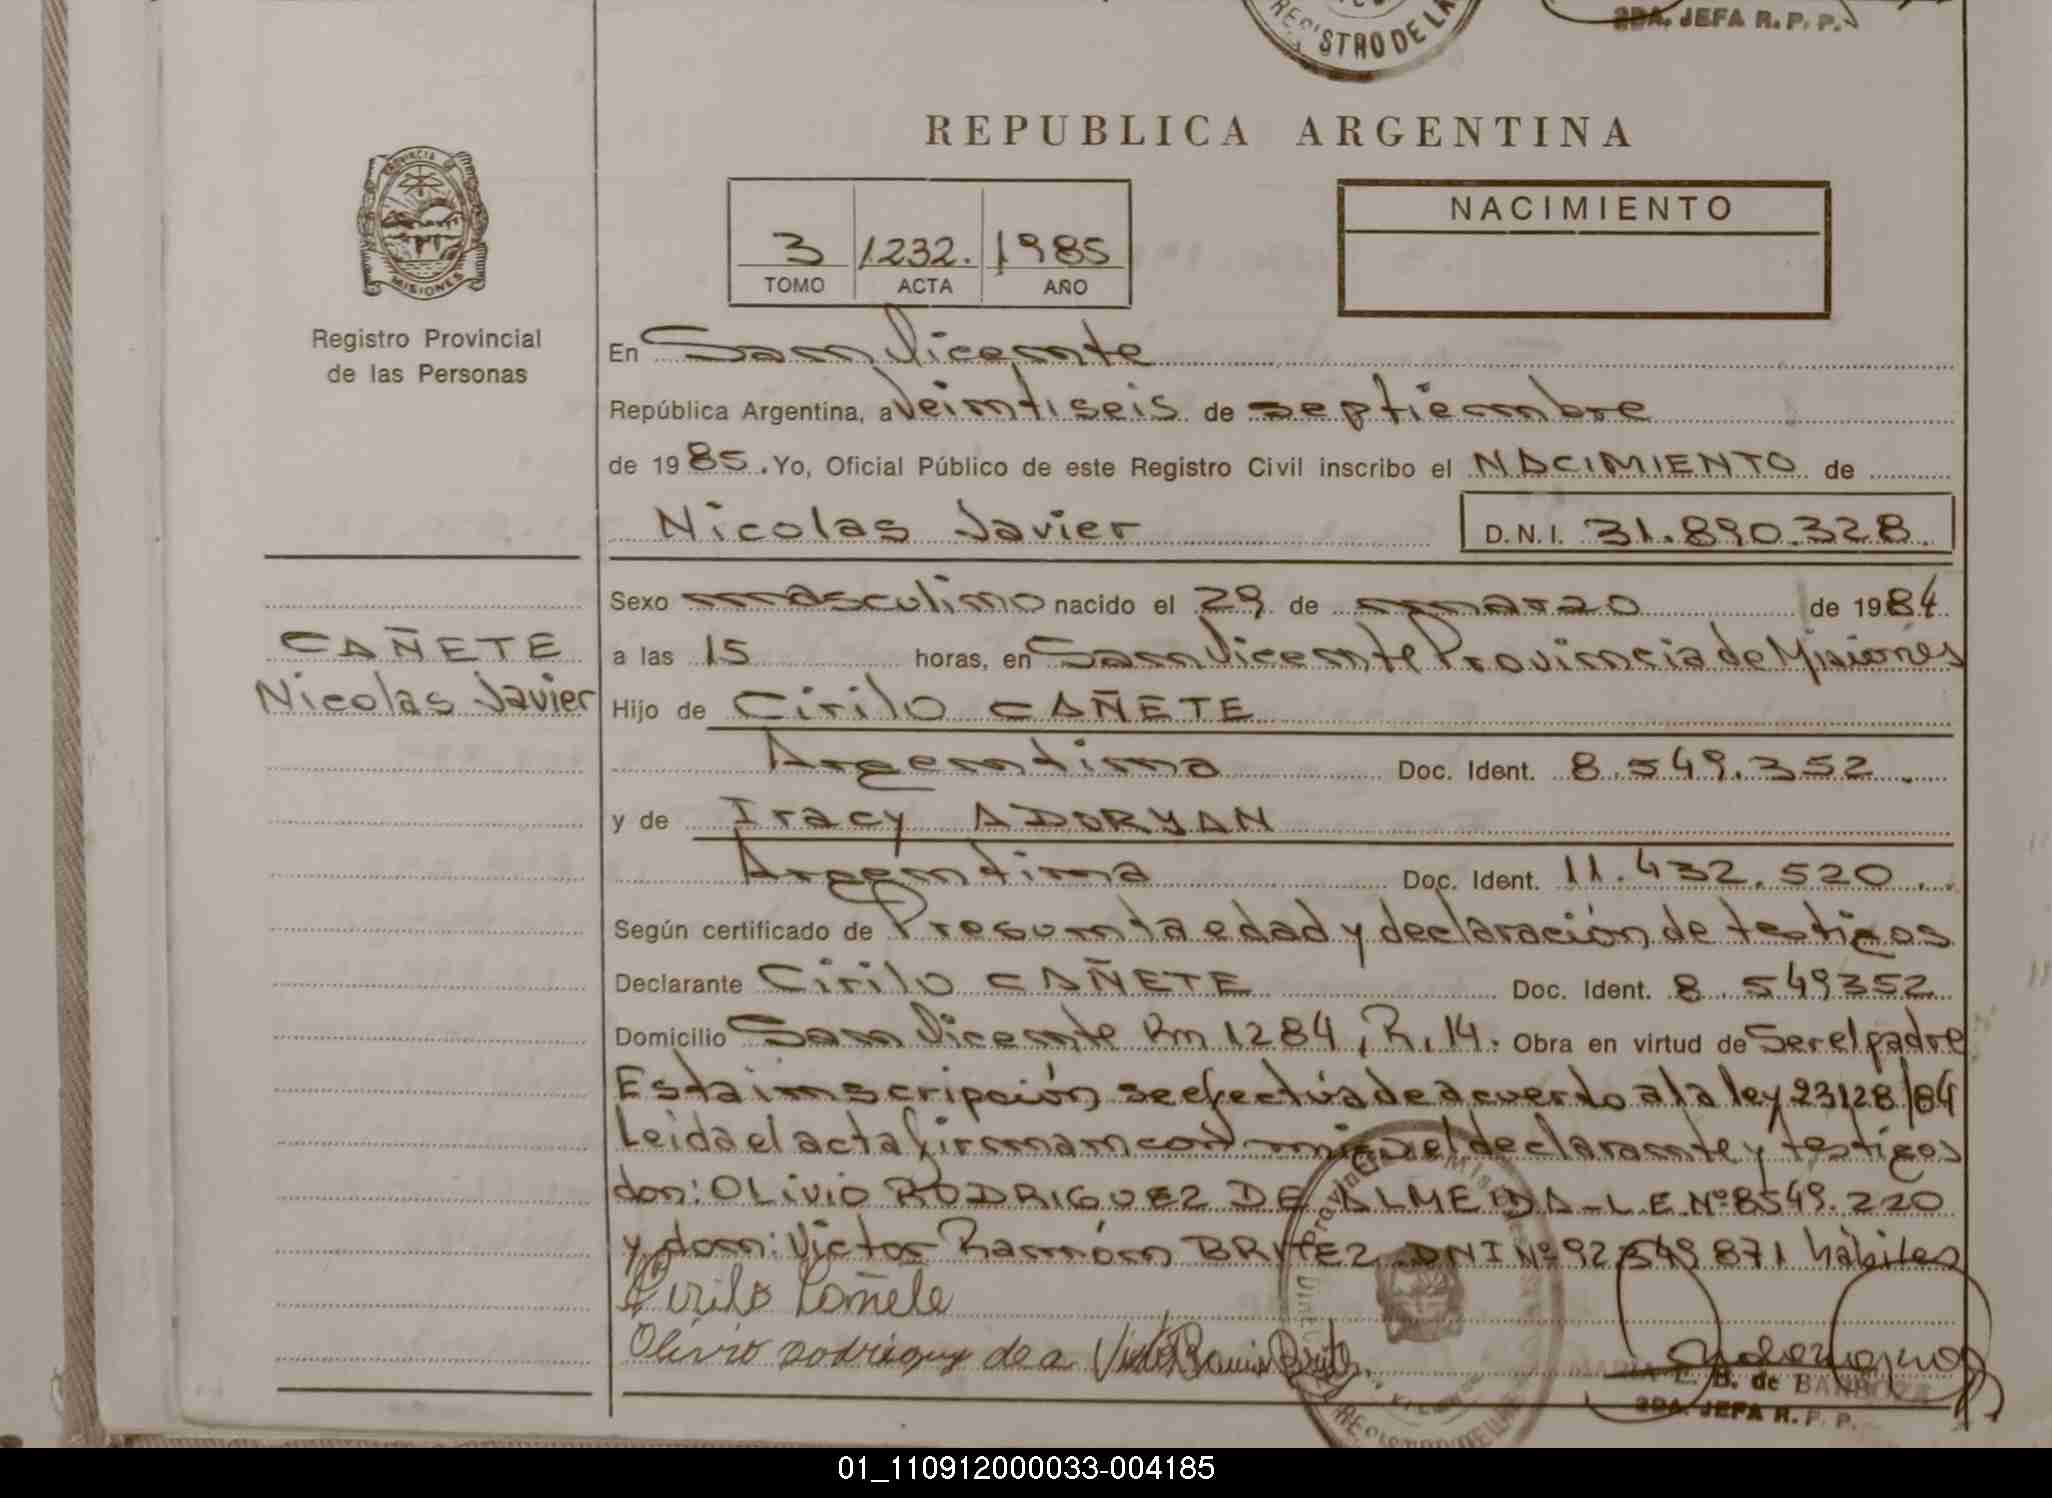 REGISTRO DE LA
2DA. JEFA R. P. P.
REPUBLICA ARGENTINA
PROVINCIA DE
MISIONES
Registro Provincial
de las Personas
3 1232. 1985
TOMO ACTA AÑO
NACIMIENTO
En San Vicente
República Argentina, a Veintiseis de septiembre
de 1985. Yo, Oficial Público de este Registro Civil inscribo el NACIMIENTO de
Nicolas Javier D.N.I. 31.890.328.
CAÑETE
Nicolas Javier
Sexo masculino nacido el 29 de marzo de 1984
a las 15 horas, en San Vicente Provincia de Misiones
Hijo de Cirilo CAÑETE
Argentina Doc. Ident. 8.549.352.
y de Iracy ADORYAN
Argentina Doc. Ident. 11.432.520.
Según certificado de Presunta edad y declaración de testigos
Declarante Cirilo CAÑETE Doc. Ident. 8.549352
Domicilio San Vicente Km 1284, R. 14. Obra en virtud de Ser el padre
Esta inscripción se efectúa de acuerdo a la ley 23128/84
Leida el acta firman con migo el declarante y testigos
don: OLIVIO RODRIGUEZ DE ALMEIDA-L.E.Nº8549.220
y don: Victor Ramón BRITEZ DNI Nº92.549871 hábiles
Cirilo Cañete
Olivio rodriguez de a
B. de BARBOZA
2DA. JEFA R. P. P.
01_110912000033-004185